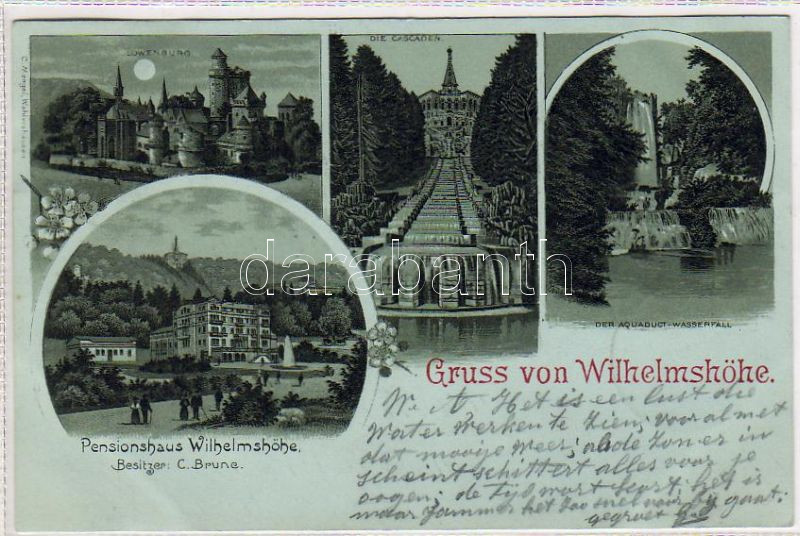 LÖWENBURG.
DIE CASCADEN.
DER AQUADUCT-WASSERFALL
darabanth
Gruss von Wilhelmshöhe.
Pensionshaus Wilhelmshöhe,
Besitzer: C. Brune.
Het is een lust die
Waterwerken te zien, vooral met
dat mooije weer; als de Zon er in
scheint schittert alles voor je
oogen; de tijd wort kort, het is
maar jammer het zoo snel voor by gaat.
gegroet